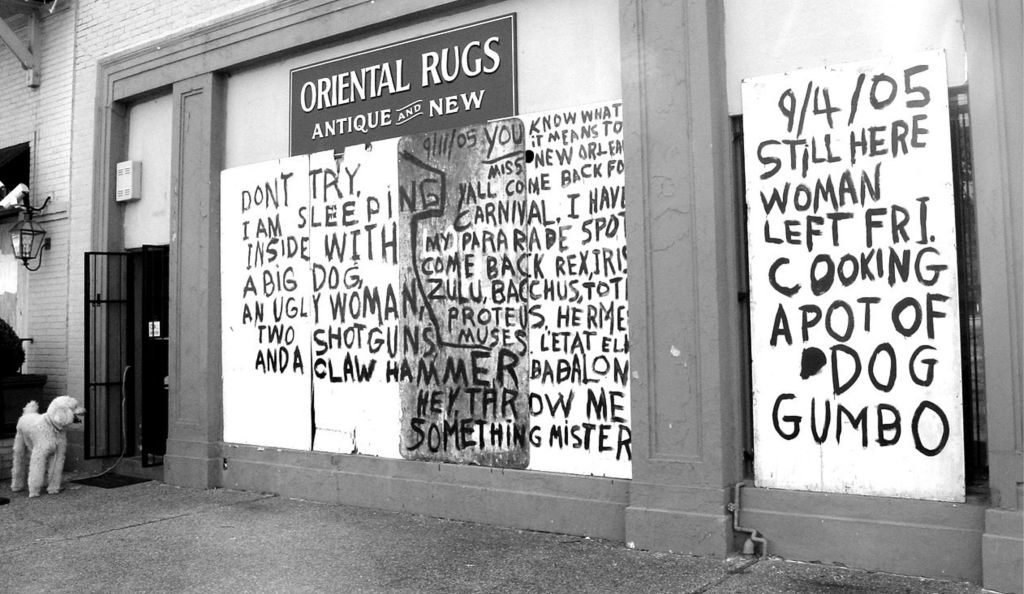 ORIENTAL RUGS
ANTIQUE AND NEW
DONT TRY.
I AM SLEEPING
INSIDE WITH
A BIG DOG,
AN UGLY WOMAN,
TWO SHOTGUNS
AND A CLAW HAMMER
9/11/05 YOU KNOW WHAT
IT MEANS TO
MISS NEW ORLEA
YALL COME BACK FO
CARNIVAL, I HAVE
MY PARARADE SPOT
COME BACK REX, IRIS
ZULU, BACCHUS, TOT
PROTEUS, HERME
MUSES, L'ETAT EL
BABALON
HEY, THROW ME
SOMETHING MISTER
9/4/05
STILL HERE
WOMAN
LEFT FRI.
COOKING
A POT OF
DOG
GUMBO